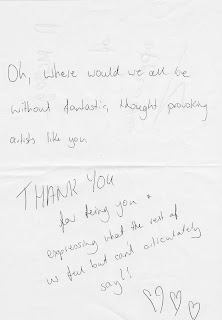 Oh, where would we all be
without fantastic, thought provoking
artists like you
THANK YOU
for being you +
expressing what the rest of
us feel but can't articulately
say!!